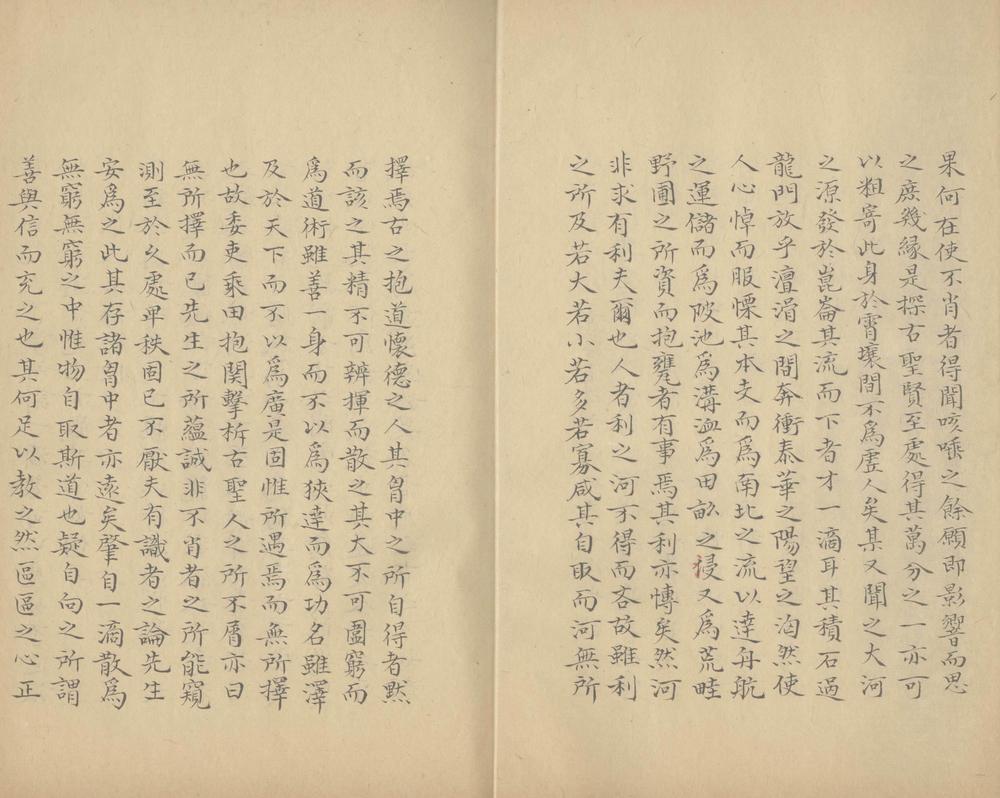 果何在使不肖者得聞咳唾之餘願即影響而思
之庶幾緣是探古聖賢至處得其萬分之一亦可
以粗寄此身於霄壤間不爲虛人矣某又聞之大河
之源發於崑崙其流而下者才一滴耳其積石過
龍門放乎澶滑之間奔衝泰華之陽望之洶然使
人心悼而服慄其本支而爲南北之流以達舟航
之運儲而爲陂池爲溝洫爲田畝之浸又爲荒畦
野圃之所資而抱甕者有事焉其利亦慱矣然河
非求有利夫爾也人者利之河不得而吝故雖利
之所及若大若小若多若寡咸其自取而河無所
擇焉古之抱道懷德之人其胷中之所自得者默
而該之其精不可辨揮而散之其大不可圖窮而
爲道術雖善一身而不以爲狹達而爲功名雖澤
及於天下而不以爲廣是固惟所遇焉而無所擇
也故委吏乘田抱関擊柝古聖人之所不屑亦曰
無所擇而已先生之所蘊誠非不肖者之所能窺
測至於久處卑秩固已不厭夫有識者之論先生
安爲之此其存諸胷中者亦遠矣肇自一滴散爲
無窮無窮之中惟物自取斯道也疑自向之所謂
善與信而充之也其何足以教之然區區之心正